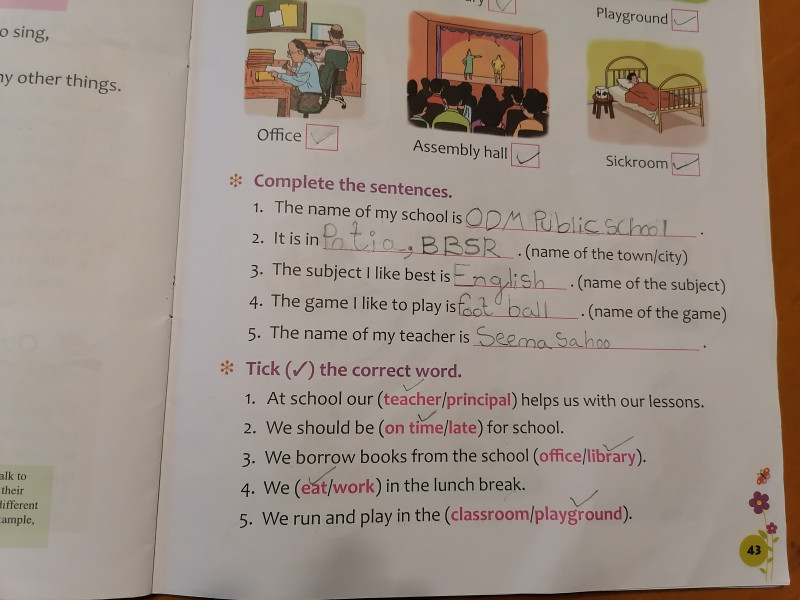 o sing,
ny other things.
Playground ✓
Office ✓
Assembly hall ✓
Sickroom ✓
❇ Complete the sentences.
1. The name of my school is ODM Public school.
2. It is in Patia, BBSR. (name of the town/city)
3. The subject I like best is English. (name of the subject)
4. The game I like to play is foot ball. (name of the game)
5. The name of my teacher is Seema sahoo.
❇ Tick (✓) the correct word.
1. At school our (teacher/principal) helps us with our lessons.
2. We should be (on time/late) for school.
3. We borrow books from the school (office/library).
4. We (eat/work) in the lunch break.
5. We run and play in the (classroom/playground).
alk to
their
different
ample,
43